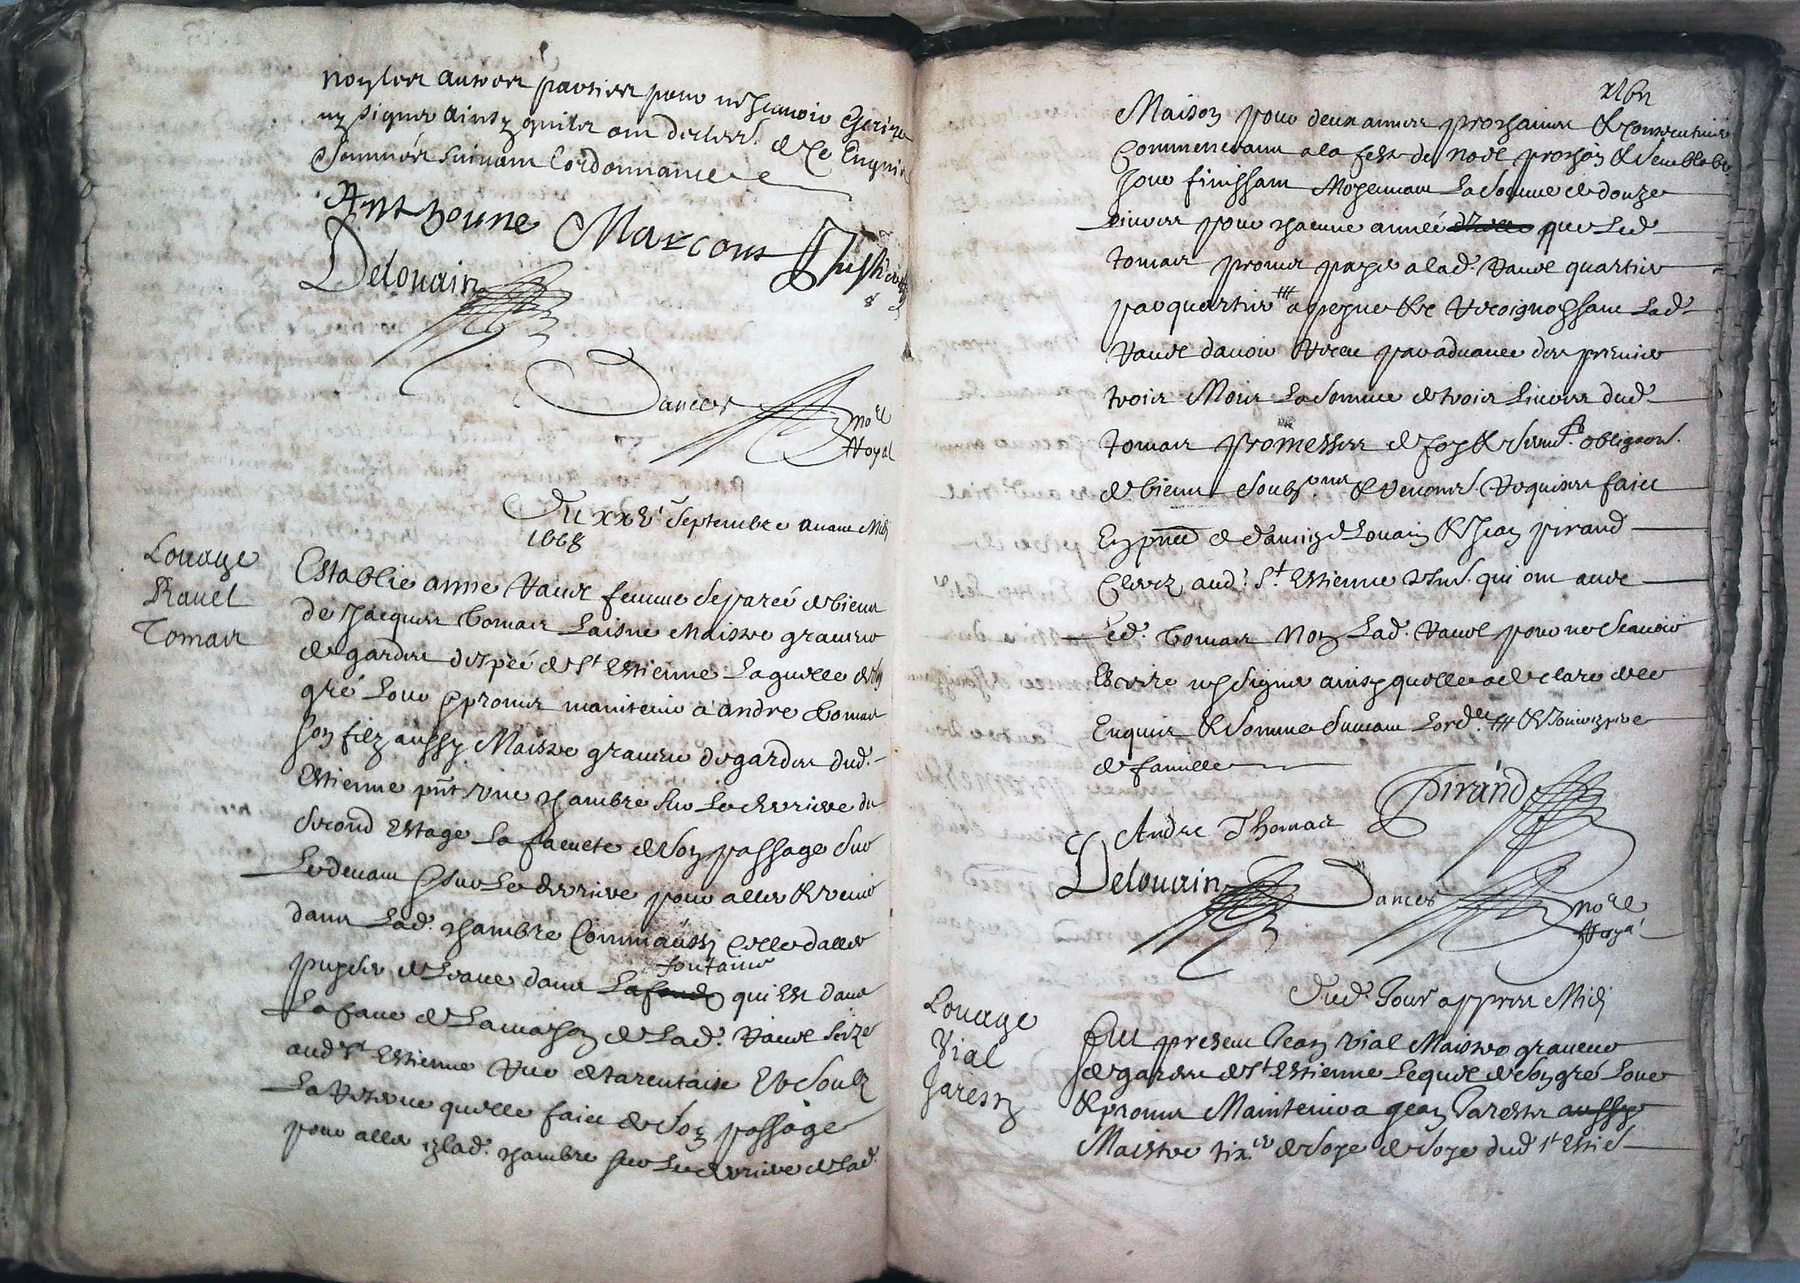 non les autres parties pour ne scavoir escrire
ny signer ainsy qu'ilz ont declere de ce enquis
sommés suivant l'ordonnance
Anthoune Marcons
Delouain
Dances no.re
Royal
Du xxv.e Septembre avant Midi
1668
Louage
Ravel
Tomas
Establie anne Ravel femme separeé de biens
de Jacques Tomas Laisné Maistre graveur
de gardes despeé de S.t Estienne Laquelle de son
gré Loue & promet maintenir a andre Tomas
son filz aussy Maistre graveur de gardes dud.
Estienne p.nt une chambre sur Le derriere du
second estage La faculté de son passage sur
Le devant & sur Le derriere pour aller & venir
dans Lad. chambre Comm'aussy celle daller
puyser de Leaue dans La fond fontaine qui Est dans
La Cave de La maison de Lad. Ravel Scize
aud. S.t Estienne Rue de tarentaise Et soubz
La Reserve quelle faict de son passage
pour aller en lad. chambre sur Le derriere de Lad.
Maison pour deux années prochaines & consecutives
Commencant a la feste de noel prochain & semblable
jour finissant Moyenant La somme de douze
Livres pour chacune année que Led.
tomas promet payer a lad. Ravel quartier
par quartier a peyne &c Recoignoissant Lad.
Ravel davoir Receu par advance des premier
trois Mois La somme de trois Livres dud.
tomas promesses de foy & serm.t obligaons.
de biens soubz.ons & Renons. Requises faict
En pnce de Damien Delouain & Jean pirand
Clercz aud. S.t Estienne Soubs. qui ont avec
Led. Tomas Non Lad. Ravel pour ne scavoir
Escrire ny signer ainsy quelle a declare delle
Enquis & sommé suivant Lord.ce # & en bon pere
de famille
Pirand
André Thomas
Delouain
Dances no.re
Roya.l
Dud. Jour appres Midi
Louage
Vial
Jarestz
Fut present Jean Vial Maistre graveur
de gardes de S.t Estienne Lequel de son gré Loue
& promet Maintenir a Jean Jarestz aussy
Maistre tix.er de soye de soye dud. S.t Esti.e